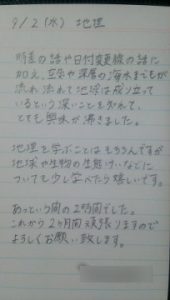 9/2 (水) 地理
時差の話や日付変更線の話に
加え、空気や深層の海水までもが
流れ流れて地球は成り立って
いるという深いことを知れて、
とても興味が湧きました。
地理を学ぶことはもちろんですが
地球や生物の生態けいなどに
ついても少し学べたら嬉しいです。
あっという間の2時間でした。
これから2ヶ月間頑張りますので
よろしくお願い致します。